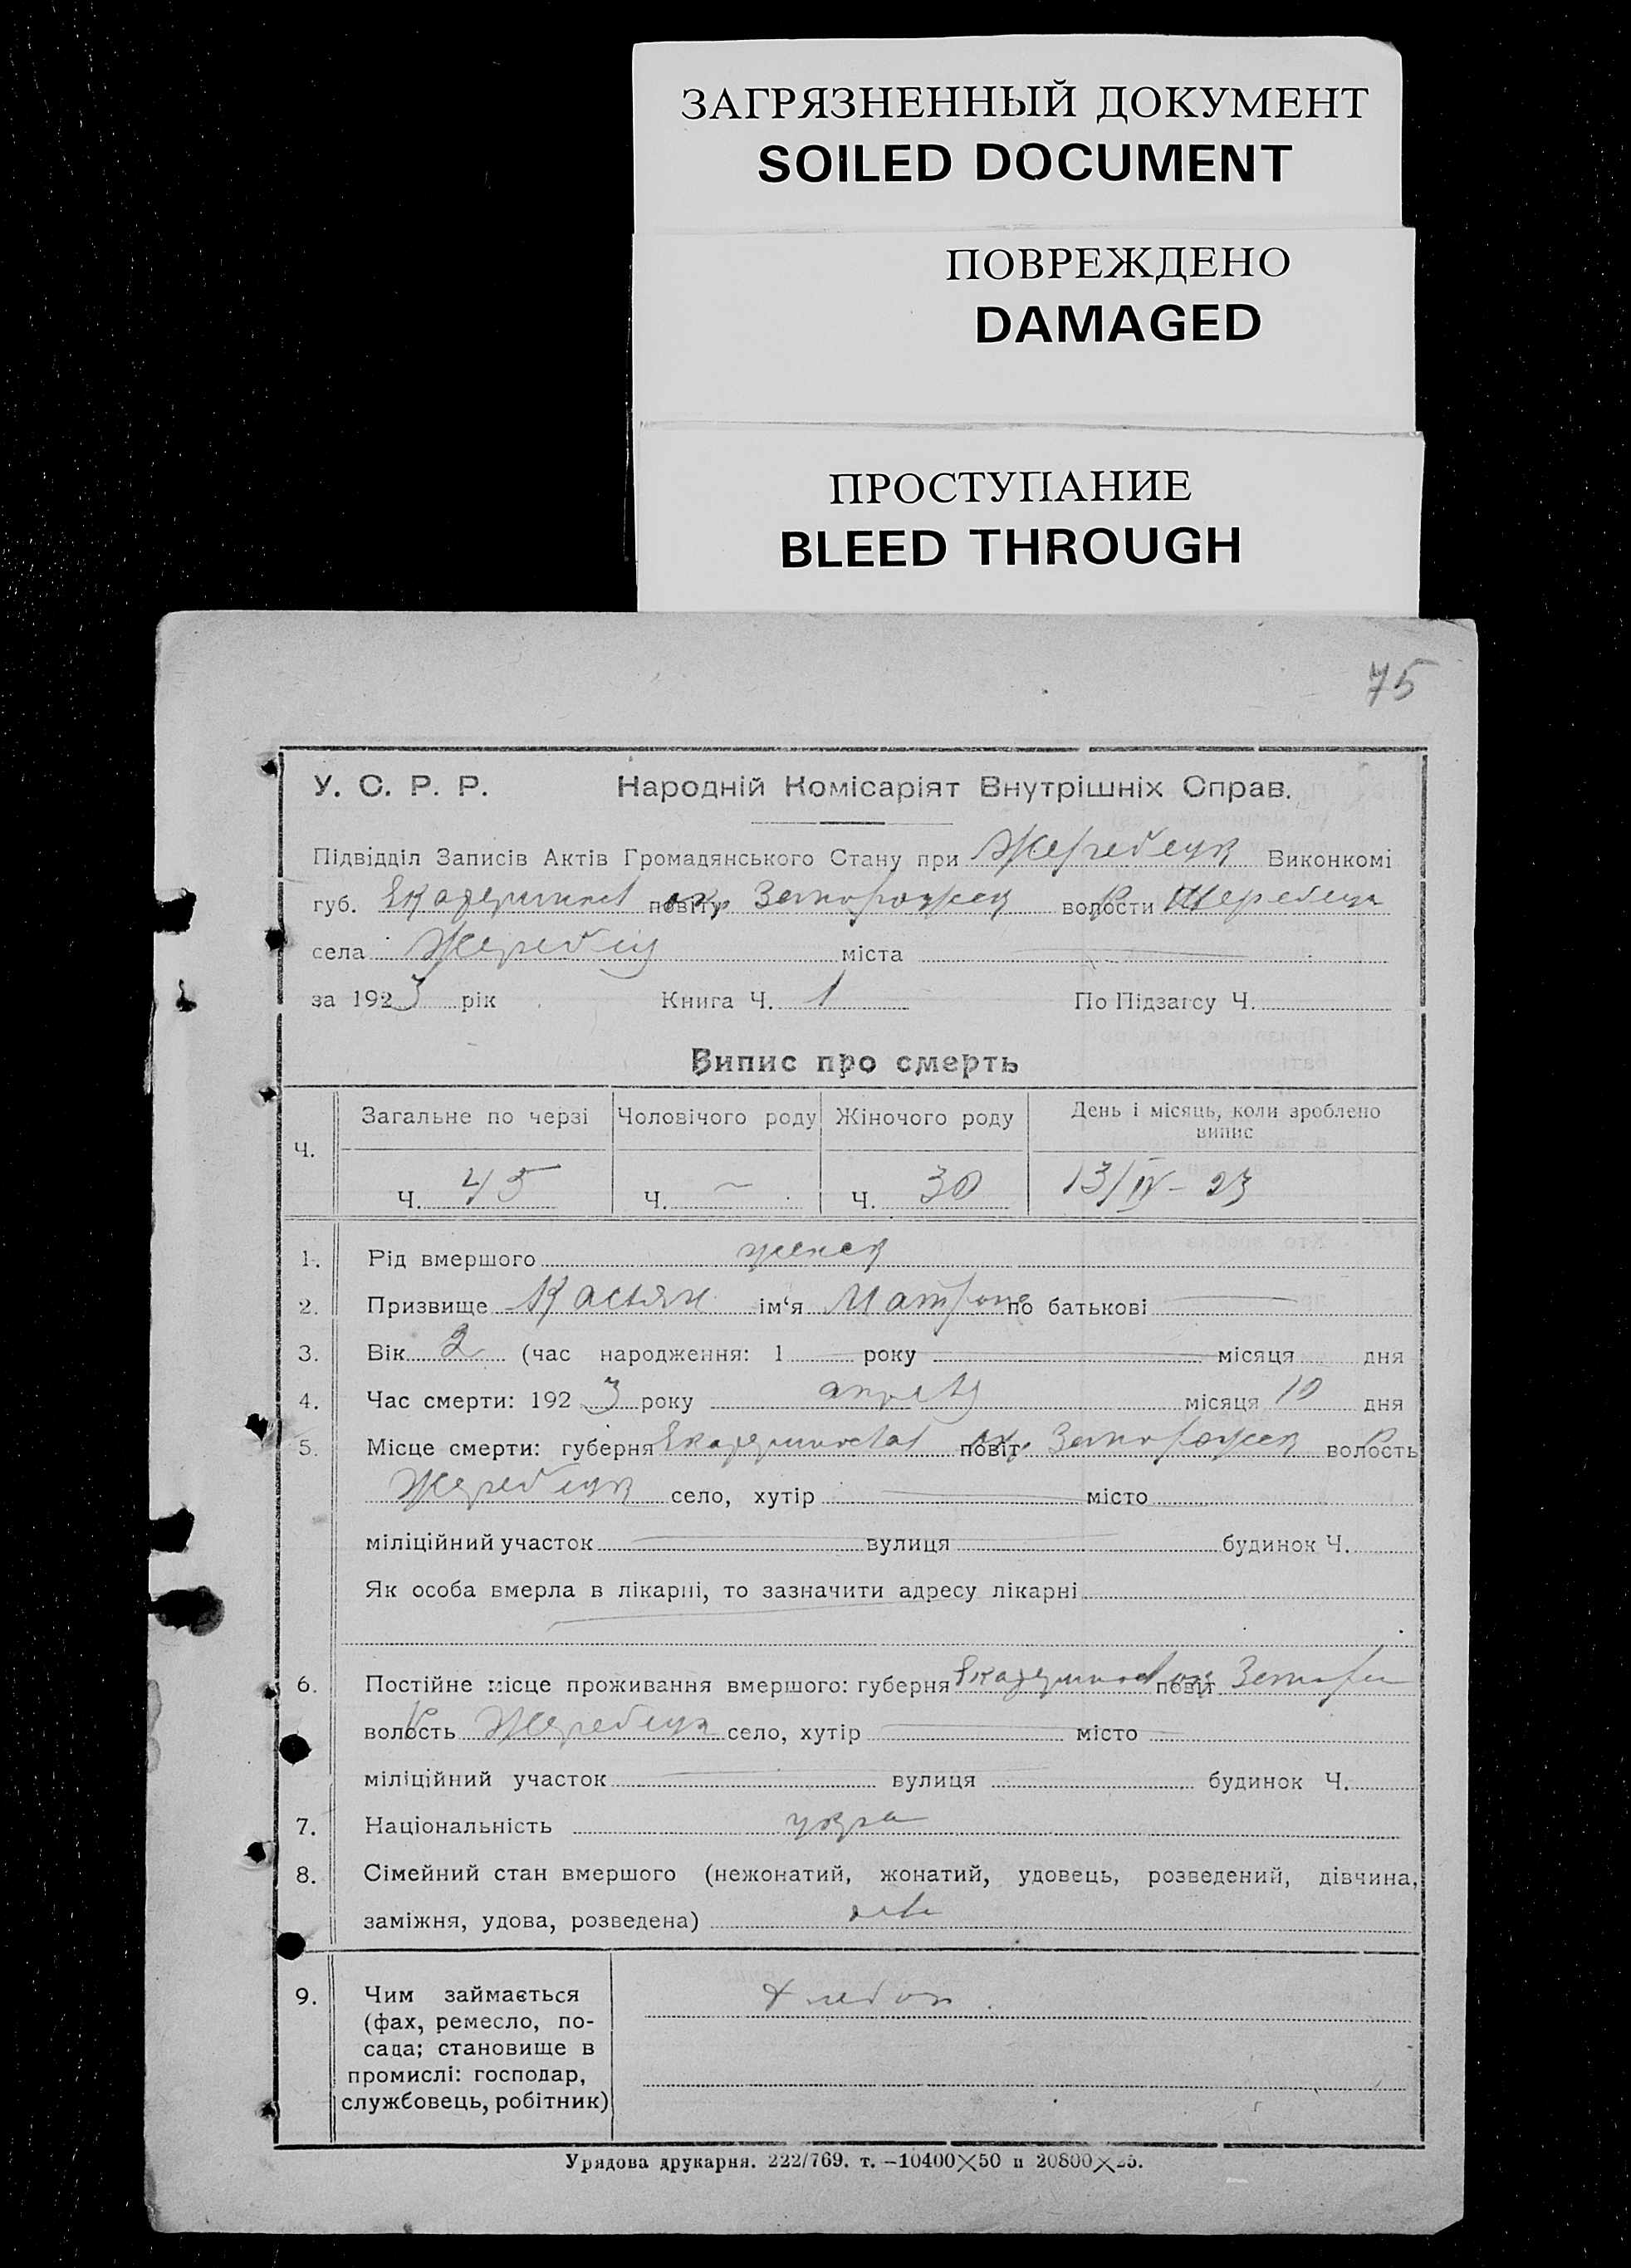 ЗАГРЯЗНЕННЫЙ ДОКУМЕНТ
SOILED DOCUMENT
ПОВРЕЖДЕНО
DAMAGED
ПРОСТУПАНИЕ
BLEED THROUGH
75
У. С. Р. Р. Народній Комісаріят Внутрішніх Справ.
Підвідділ Записів Актів Громадянського Стану при Жеребецк Виконкомі
губ. Екатериносл повіту ок. Запорожск волости Р Жеребецк
села Жеребец міста
за 1923 рік Книга Ч. 1 По Підзагсу Ч.
Випис про смерть
Ч. Загальне по черзі Чоловічого роду Жіночого роду День і місяць, коли зроблено випис
Ч. 45 Ч. – Ч. 30 13/IV – 23
1. Рід вмершого женск
2. Призвище Касьян ім'я Матрона по батькові
3. Вік 2 (час народження: 1 року місяця дня
4. Час смерти: 1923 року апрель місяця 10 дня
5. Місце смерти: губерня Екатериносlav повіт ок. Запорожск волость Р
Жеребецк село, хутір місто
міліційний участок вулиця будинок Ч.
Як особа вмерла в лікарні, то зазначити адресу лікарні
6. Постійне місце проживання вмершого: губерня Екатеринос повіт Запорож
волость Р Жеребецк село, хутір місто
міліційний участок вулиця будинок Ч.
7. Національність укра
8. Сімейний стан вмершого (нежонатий, жонатий, удовець, розведений, дівчина,
заміжня, удова, розведена)
9. Чим займається
(фах, ремесло, по-
сада; становище в
промислі: господар,
службовець, робітник)
Хлебоп
Урядова друкарня. 222/769. т. –10400×50 и 20800×25.